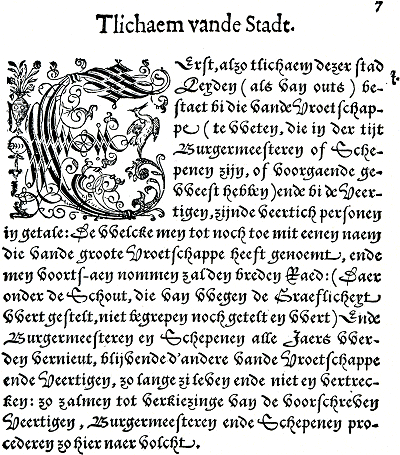 7
Tlichaem vande Stadt.
Erst, alzo tlichaem dezer stad
Leyden (als van outs) be-
staet bi die vande Vroetschap-
pe (te vveten, die in der tijt
Burgermeesteren of Sche-
penen zijn, of voorgaende ge-
vveest hebben) ende bi de Veer-
tigen, zijnde veertich personen
in getale: De vvelcke men tot noch toe mit eenen naem
die vande groote Vroetschappe heeft genoemt, ende
men voorts-aen nommen zal den breden Raed: (Daer
onder de Schout, die van vvegen de Graeflicheyt
vvert gestelt, niet begrepen noch getelt en vvert) Ende
Burgermeesteren en Schepenen alle Jaers vver-
den vernieut, blijvende d'andere vande Vroetschappe
ende Veertigen, zo lange zi leven ende niet en vertrec-
ken: zo zalmen tot verkiezinge van de voorschreven
Veertigen, Burgermeesteren ende Schepenen pro-
cederen zo hier naer volcht.